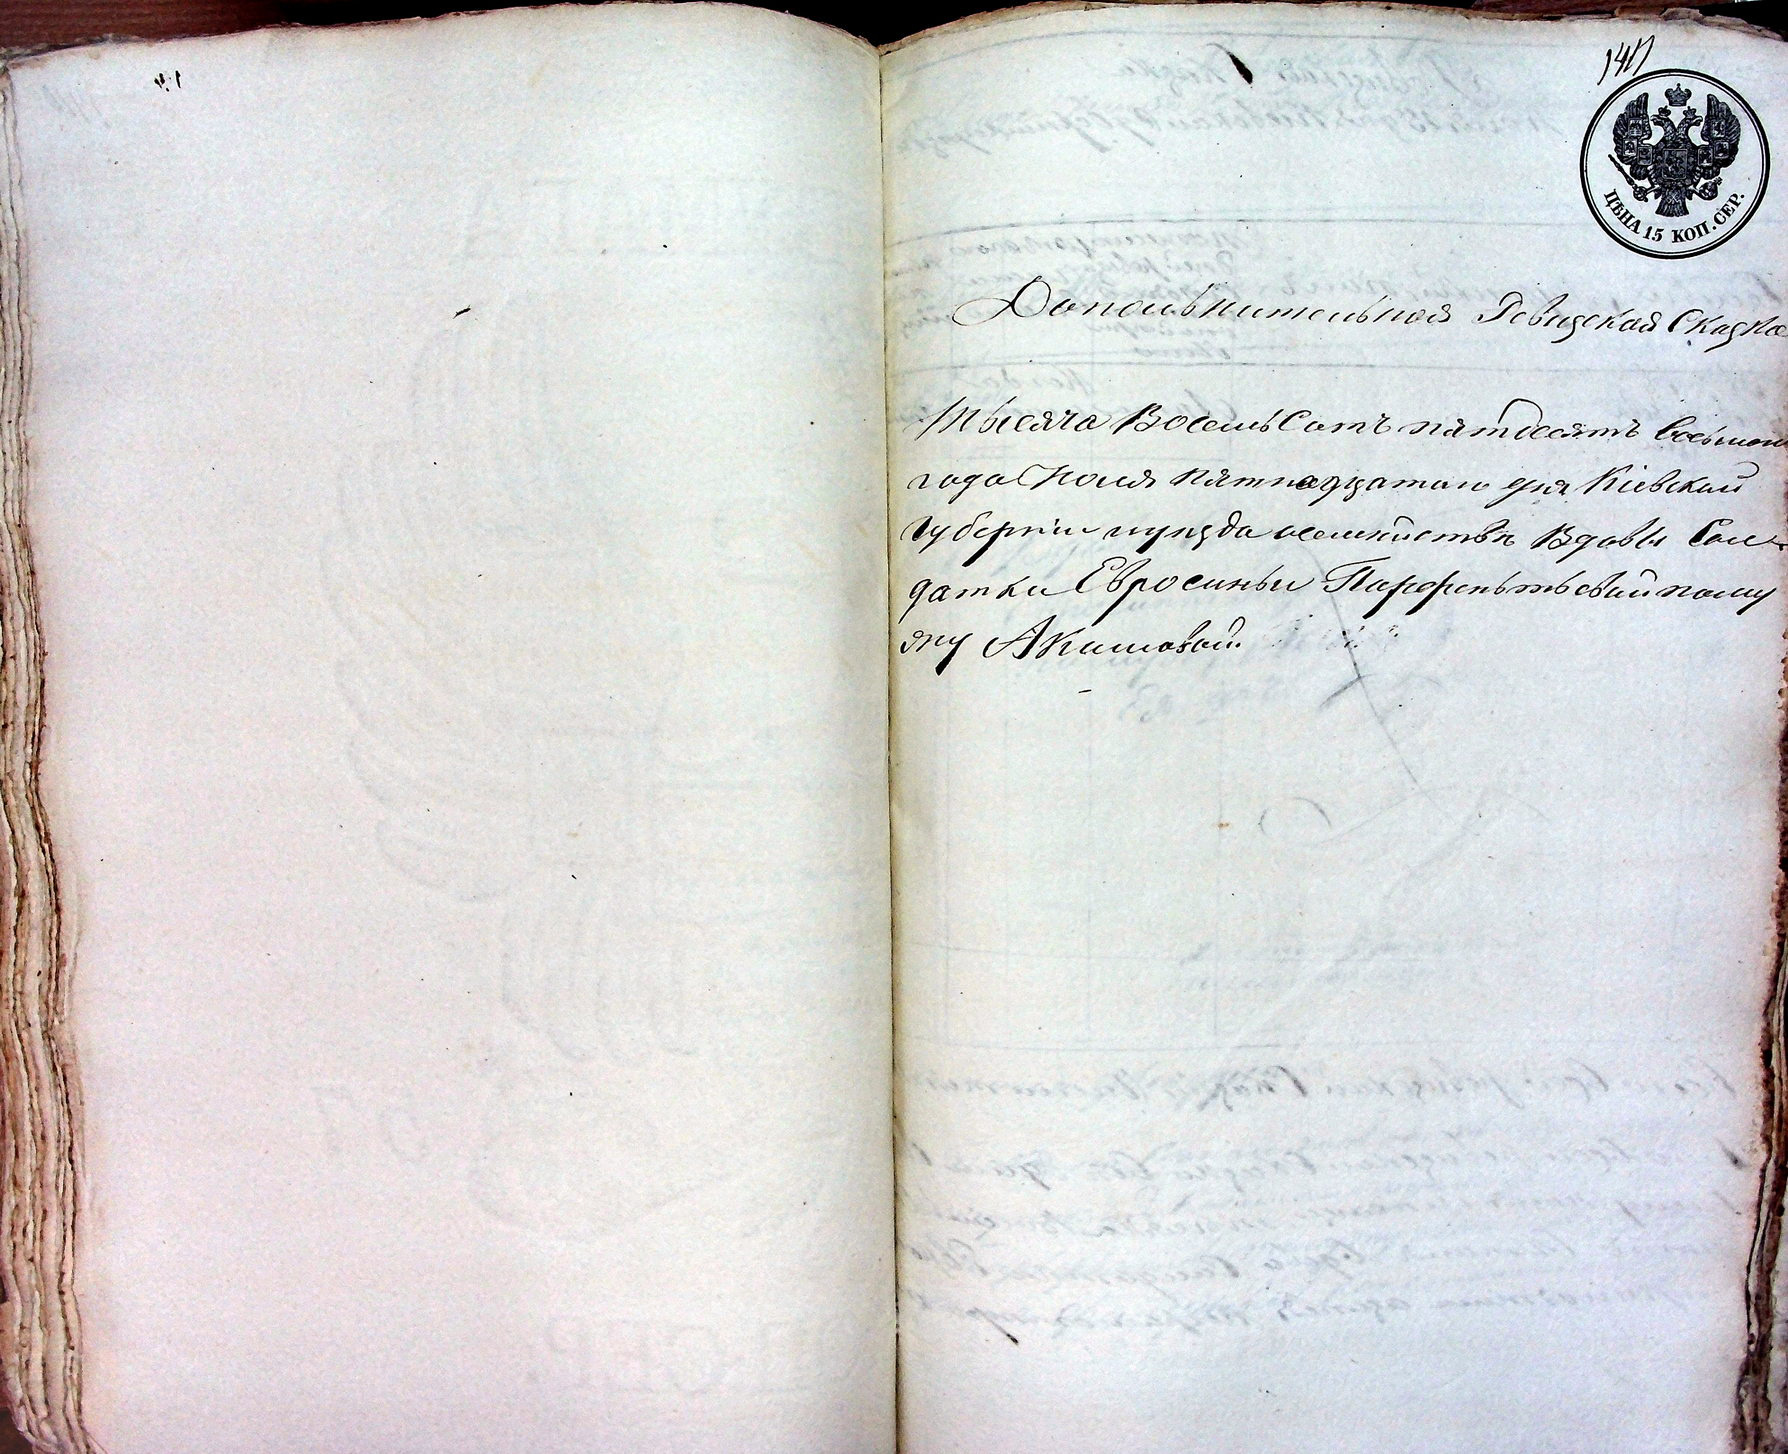 147
ЦѢНА 15 КОП. СЕР.
Допольнительная Ревизская Сказка
тысяча Восемьсотъ пятдесятъ восьмаго
года Июля пятнадцатаго дня Кіевской
Губерніи о семействѣ Вдовы Сол-
датки Евросиньи Парфентьевой по му
жу Акимовой.